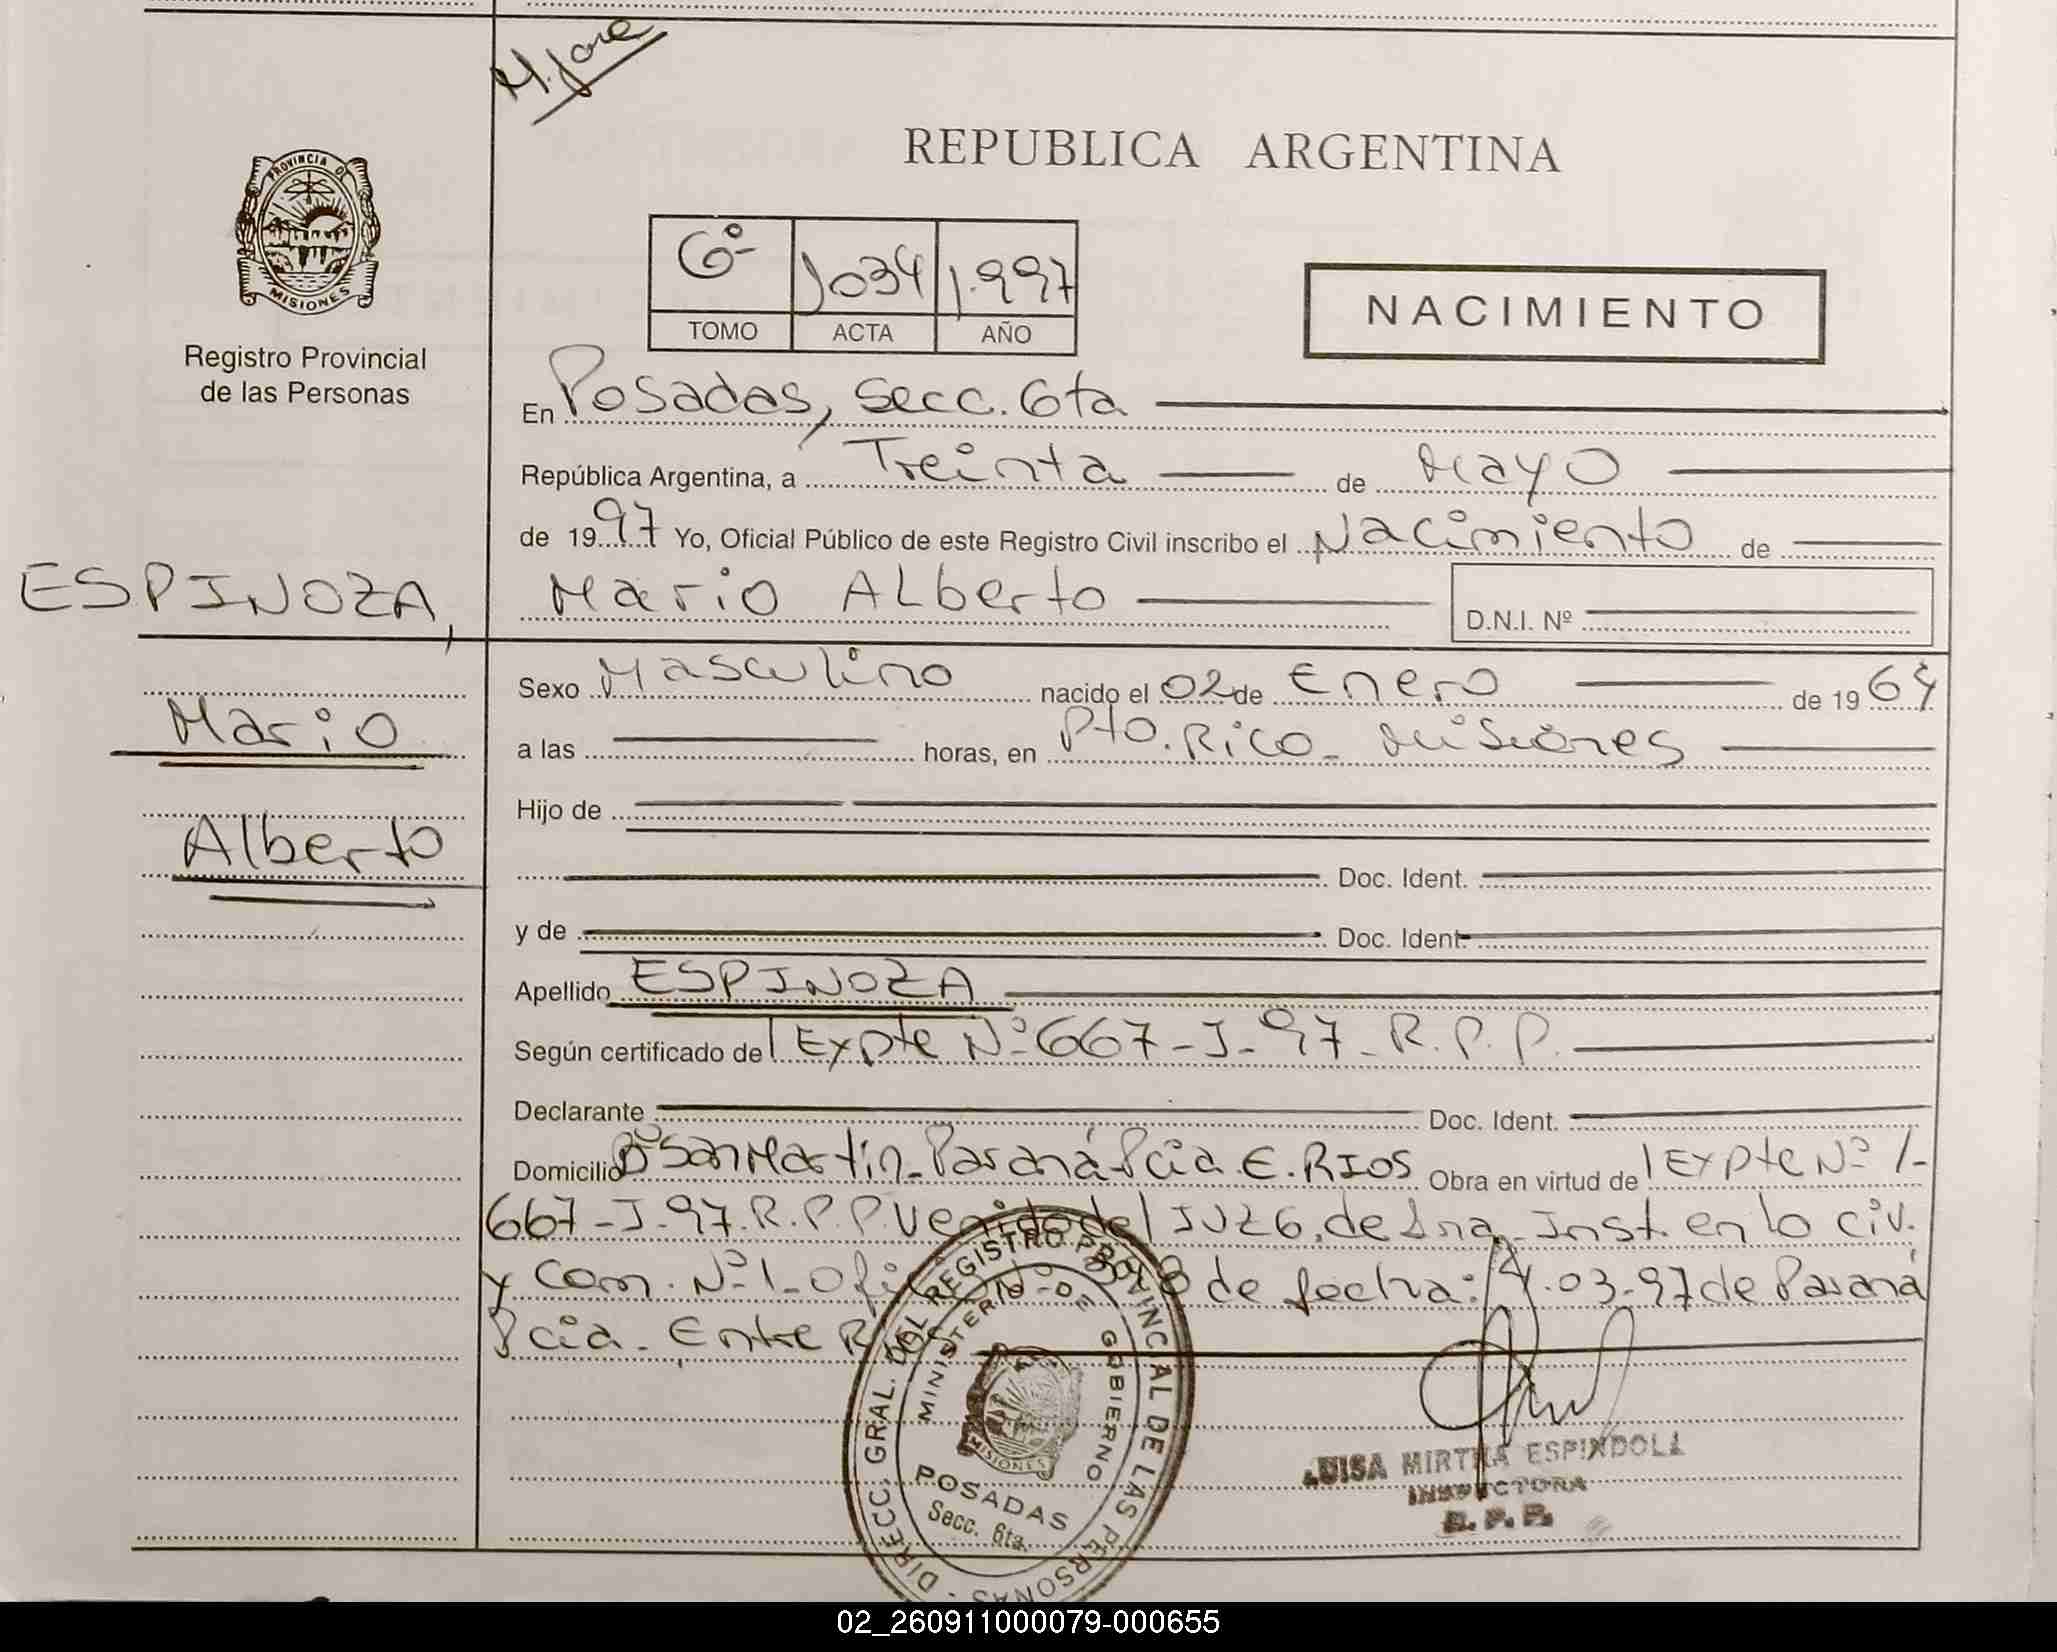 M. Jose
REPUBLICA ARGENTINA
PROVINCIA DE
MISIONES
Registro Provincial
de las Personas
6º 1034 1.997
TOMO ACTA AÑO
NACIMIENTO
En Posadas, Secc. 6ta
República Argentina, a Treinta de Mayo
de 1997 Yo, Oficial Público de este Registro Civil inscribo el Nacimiento de
ESPINOZA,
Mario Alberto
D.N.I. Nº
Mario
Alberto
Sexo Masculino nacido el 02 de Enero de 1964
a las horas, en Pto. Rico - Misiones
Hijo de
Doc. Ident.
y de Doc. Ident
Apellido ESPINOZA
Según certificado del Expte Nº 667-J-97-R.P.P.
Declarante Doc. Ident.
Domicilio Bº San Martin - Paraná Pcia E. RIOS Obra en virtud del Expte Nº
667-J-97.R.P.P. Venido del JUZG. de 1ra Inst. en lo civ.
y Com. Nº 1 - de fecha: 03-97 de Paraná
Pcia. Entre
DIRECC. GRAL. DEL REGISTRO PROVINCIAL DE LAS PERSONAS
MINISTERIO DE GOBIERNO
MISIONES
POSADAS
Secc. 6ta.
LUISA MIRTHA ESPINDOLA
INSPECTORA
R. P. P.
02_260911000079-000655